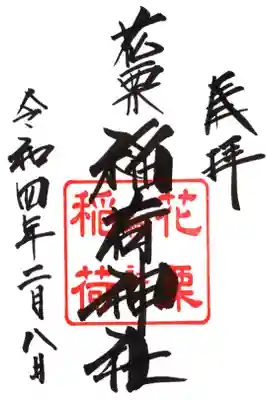 奉拝
花栗
稲荷神社
令和四年二月八日
花栗
稲荷